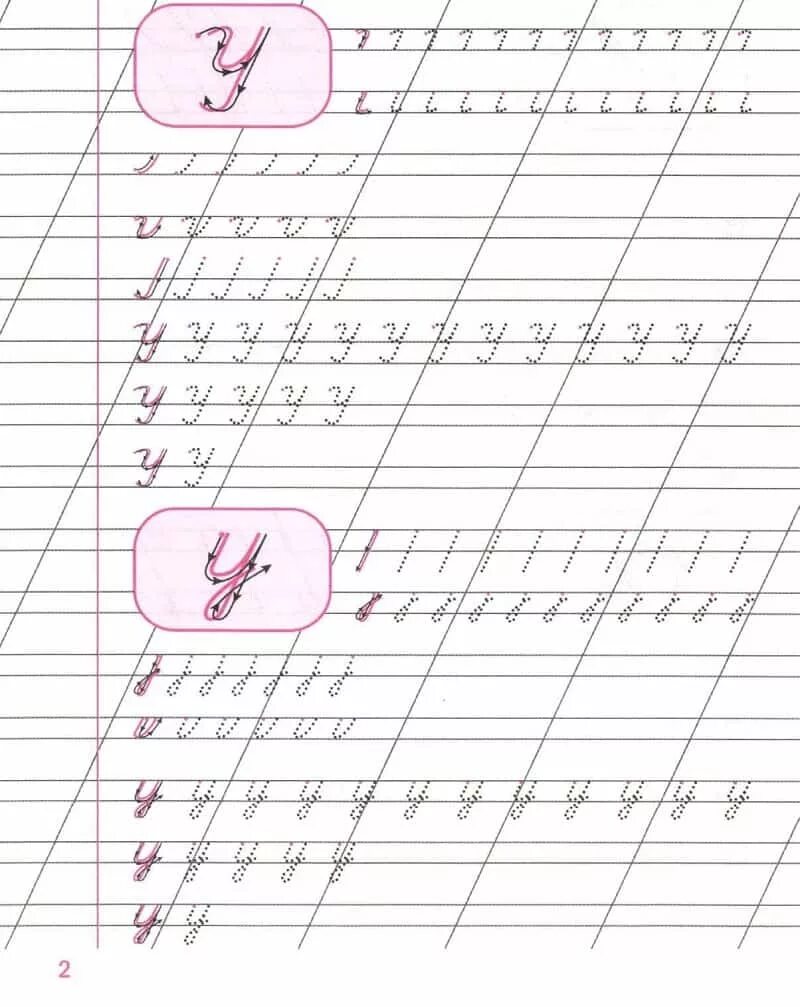 У
У У У У У У У У У У У У У
У У У У У
У У
у
у у у у у у у у у у у у
у у у у у
у у
2